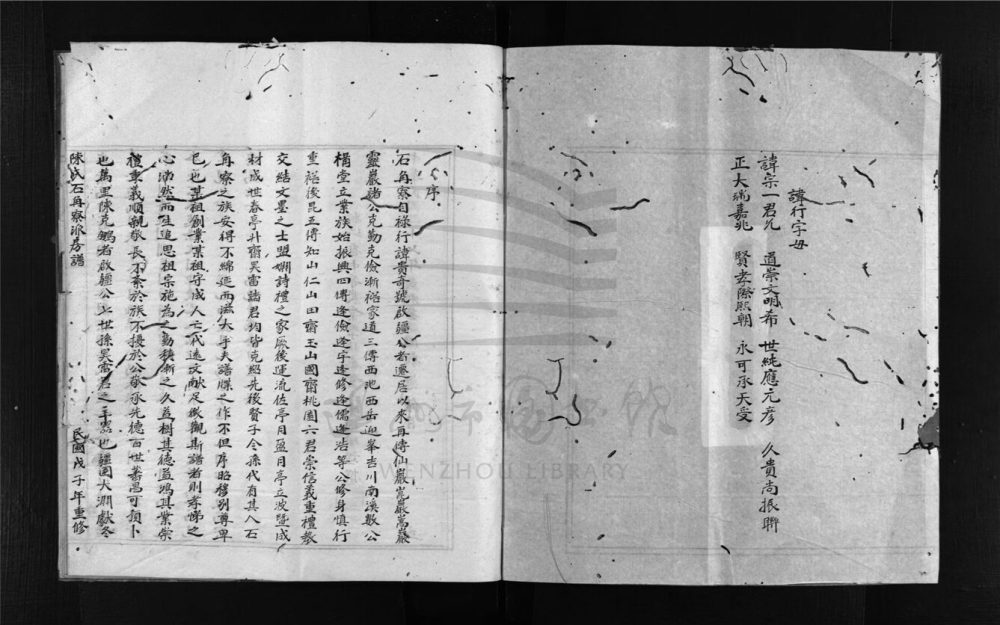 諱行字母
諱宗一君允 道崇文明希 世純應元彥 久貴尚振聯
正大瑞嘉兆 賢孝際熙朝 永可承天受
序
石角寮自祿行諱貴奇號啟疆公者遷居以來再傳仙巖崑巖嵩巖
靈巖諸公克勤克儉漸裕家道三傳西池西岳迎峯吉川南溪數公
構堂立業族始振興四傳逢儉逢宇逢修逢儒逢浩等公修身慎行
垂裕後昆五傳知山仁山田齋玉山國齋桃園六君崇信義重禮教
交結文墨之士盟姻詩禮之家厥後運流佐亭月盈月亭立波暨成
材成世春亭升齋昊雷諸君均皆克紹先後賢子令孫代有其人石
角寮之族安得不綿延而滋大乎夫譜牒之作不但序昭穆別尊卑
已也某祖創業某祖守成人亡代遠文献足徵觀斯譜者則孝悌之
心油然而生追思祖宗施為之勤積漸之久益樹其德益鴻其業崇
禮重義順親敬長不紊於族不擾於公敬承先德百世蕃昌可預卜
也萬里陳克鵬者啟疆公上世孫昊雷君之 也疆圉大淵獻冬
陳氏石角寮派房譜 民國戊子年重修
WENZHOU LIBRARY